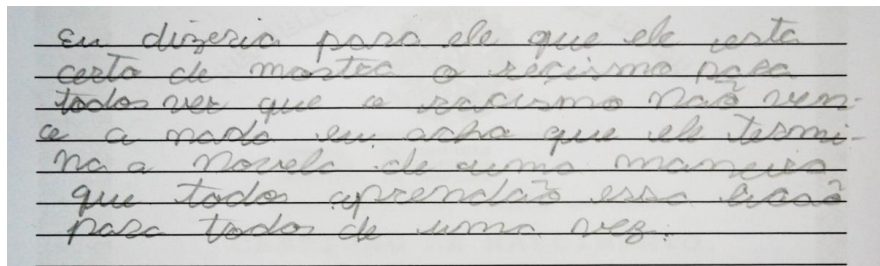 Eu dizeria para ele que ele esta
certo de mostra o recismo para
todos ver que o racismo não ven-
ce a nada eu acho que ele termi-
na a novela de uma maneira
que todos aprendão essa lição
para todos de uma vez.